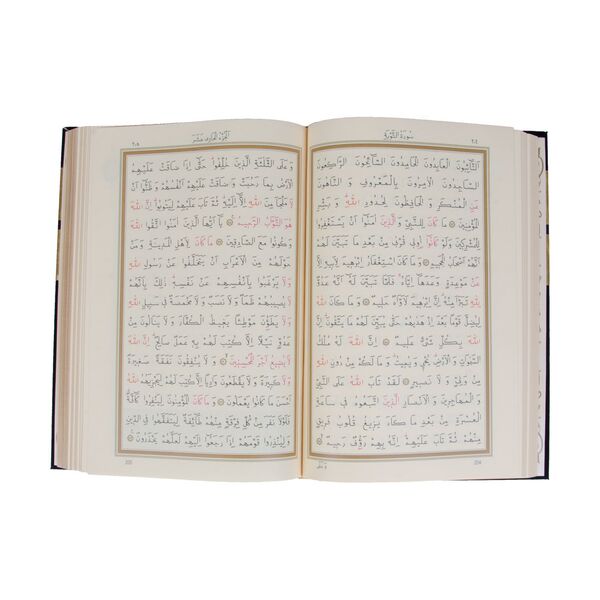 سُورَةُ التَّوْبَةِ ٢٠٤
اَلتَّٓائِبُونَ الْعَابِدُونَ الْحَامِدُونَ السَّٓائِحُونَ الرَّاكِعُونَ
السَّاجِدُونَ الْاٰمِرُونَ بِالْمَعْرُوفِ وَالنَّاهُونَ
عَنِ الْمُنْكَرِ وَالْحَافِظُونَ لِحُدُودِ اللّٰهِ وَبَشِّرِ
الْمُؤْمِن۪ينَ مَا كَانَ لِلنَّبِيِّ وَالَّذ۪ينَ اٰمَنُٓوا اَنْ يَسْتَغْفِرُوا
لِلْمُشْرِك۪ينَ وَلَوْ كَانُٓوا اُو۬ل۪ي قُرْبٰى مِنْ بَعْدِ مَا تَبَيَّنَ لَهُمْ
اَنَّهُمْ اَصْحَابُ الْجَح۪يمِ وَمَا كَانَ اسْتِغْفَارُ اِبْرٰه۪يمَ لِاَب۪يهِ اِلَّا
عَنْ مَوْعِدَةٍ وَعَدَهَٓا اِيَّاهُ فَلَمَّا تَبَيَّنَ لَهُٓ اَنَّهُ عَدُوٌّ
لِلّٰهِ تَبَرَّاَ مِنْهُ اِنَّ اِبْرٰه۪يمَ لَاَوَّاهٌ حَل۪يمٌ وَمَا كَانَ اللّٰهُ
لِيُضِلَّ قَوْمًا بَعْدَ اِذْ هَدٰيهُمْ حَتّٰى يُبَيِّنَ لَهُمْ مَا يَتَّقُونَ اِنَّ
اللّٰهَ بِكُلِّ شَيْءٍ عَل۪يمٌ اِنَّ اللّٰهَ لَهُ مُلْكُ
السَّمٰوَاتِ وَالْاَرْضِ يُحْي۪ وَيُم۪يتُ وَمَا لَكُمْ مِنْ دُونِ اللّٰهِ
مِنْ وَلِيٍّ وَلَا نَص۪يرٍ لَقَدْ تَابَ اللّٰهُ عَلَى النَّبِيِّ
وَالْمُهَاجِر۪ينَ وَالْاَنْصَارِ الَّذ۪ينَ اتَّبَعُوهُ ف۪ي سَاعَةِ
الْعُسْرَةِ مِنْ بَعْدِ مَا كَادَ يَز۪يغُ قُلُوبُ فَر۪يقٍ
مِنْهُمْ ثُمَّ تَابَ عَلَيْهِمْ اِنَّهُ بِهِمْ رَؤُ۫فٌ رَح۪يمٌ
204
اَلْجُزْءُ الْحَاد۪ي عَشَرَ ٢٠٥
وَعَلَى الثَّلٰثَةِ الَّذ۪ينَ خُلِّفُوا حَتّٰٓى اِذَا ضَاقَتْ عَلَيْهِمُ
الْاَرْضُ بِمَا رَحُبَتْ وَضَاقَتْ عَلَيْهِمْ اَنْفُسُهُمْ وَظَنُّٓوا اَنْ
لَا مَلْجَاَ مِنَ اللّٰهِ اِلَّٓا اِلَيْهِ ثُمَّ تَابَ عَلَيْهِمْ لِيَتُوبُوا اِنَّ اللّٰهَ
هُوَ التَّوَّابُ الرَّح۪يمُ يَٓا اَيُّهَا الَّذ۪ينَ اٰمَنُوا اتَّقُوا اللّٰهَ
وَكُونُوا مَعَ الصَّادِق۪ينَ مَا كَانَ لِاَهْلِ الْمَد۪ينَةِ وَمَنْ
حَوْلَهُمْ مِنَ الْاَعْرَابِ اَنْ يَتَخَلَّفُوا عَنْ رَسُولِ اللّٰهِ
وَلَا يَرْغَبُوا بِاَنْفُسِهِمْ عَنْ نَفْسِه۪ ذٰلِكَ بِاَنَّهُمْ
لَا يُص۪يبُهُمْ ظَمَأٌ وَلَا نَصَبٌ وَلَا مَخْمَصَةٌ ف۪ي سَب۪يلِ اللّٰهِ
وَلَا يَطَؤُ۫نَ مَوْطِئًا يَغ۪يظُ الْكُفَّارَ وَلَا يَنَالُونَ مِنْ
عَدُوٍّ نَيْلًا اِلَّا كُتِبَ لَهُمْ بِه۪ عَمَلٌ صَالِحٌ اِنَّ اللّٰهَ
لَا يُض۪يعُ اَجْرَ الْمُحْسِن۪ينَ وَلَا يُنْفِقُونَ نَفَقَةً صَغ۪يرَةً
وَلَا كَب۪يرَةً وَلَا يَقْطَعُونَ وَادِيًا اِلَّا كُتِبَ لَهُمْ لِيَجْزِيَهُمُ اللّٰهُ
اَحْسَنَ مَا كَانُوا يَعْمَلُونَ وَمَا كَانَ الْمُؤْمِنُونَ لِيَنْفِرُوا كَٓافَّةً
فَلَوْلَا نَفَرَ مِنْ كُلِّ فِرْقَةٍ مِنْهُمْ طَٓائِفَةٌ لِيَتَفَقَّهُوا فِي الدّ۪ينِ
وَلِيُنْذِرُوا قَوْمَهُمْ اِذَا رَجَعُٓوا اِلَيْهِمْ لَعَلَّهُمْ يَحْذَرُونَ
205